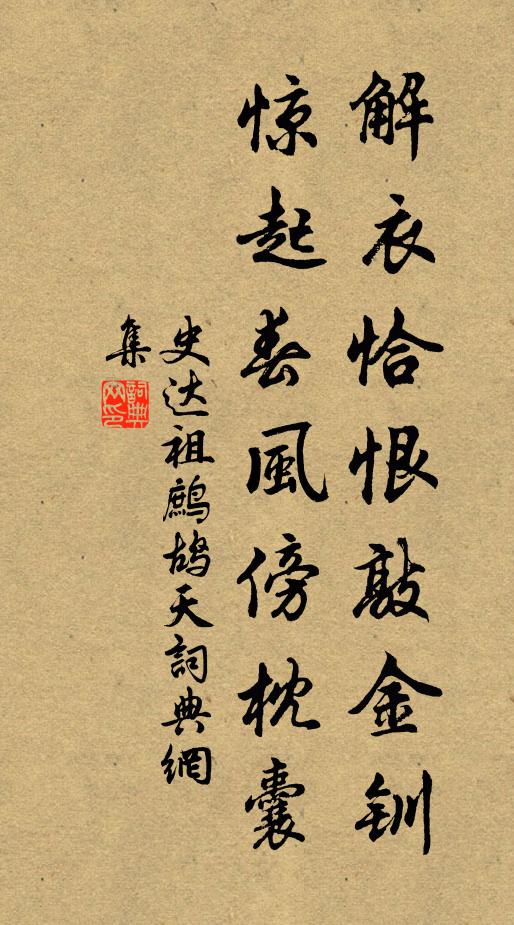 解衣恰恨敲金钏
惊起春风傍枕囊
史达祖鷓鸪天詞典網
集
詞典網印